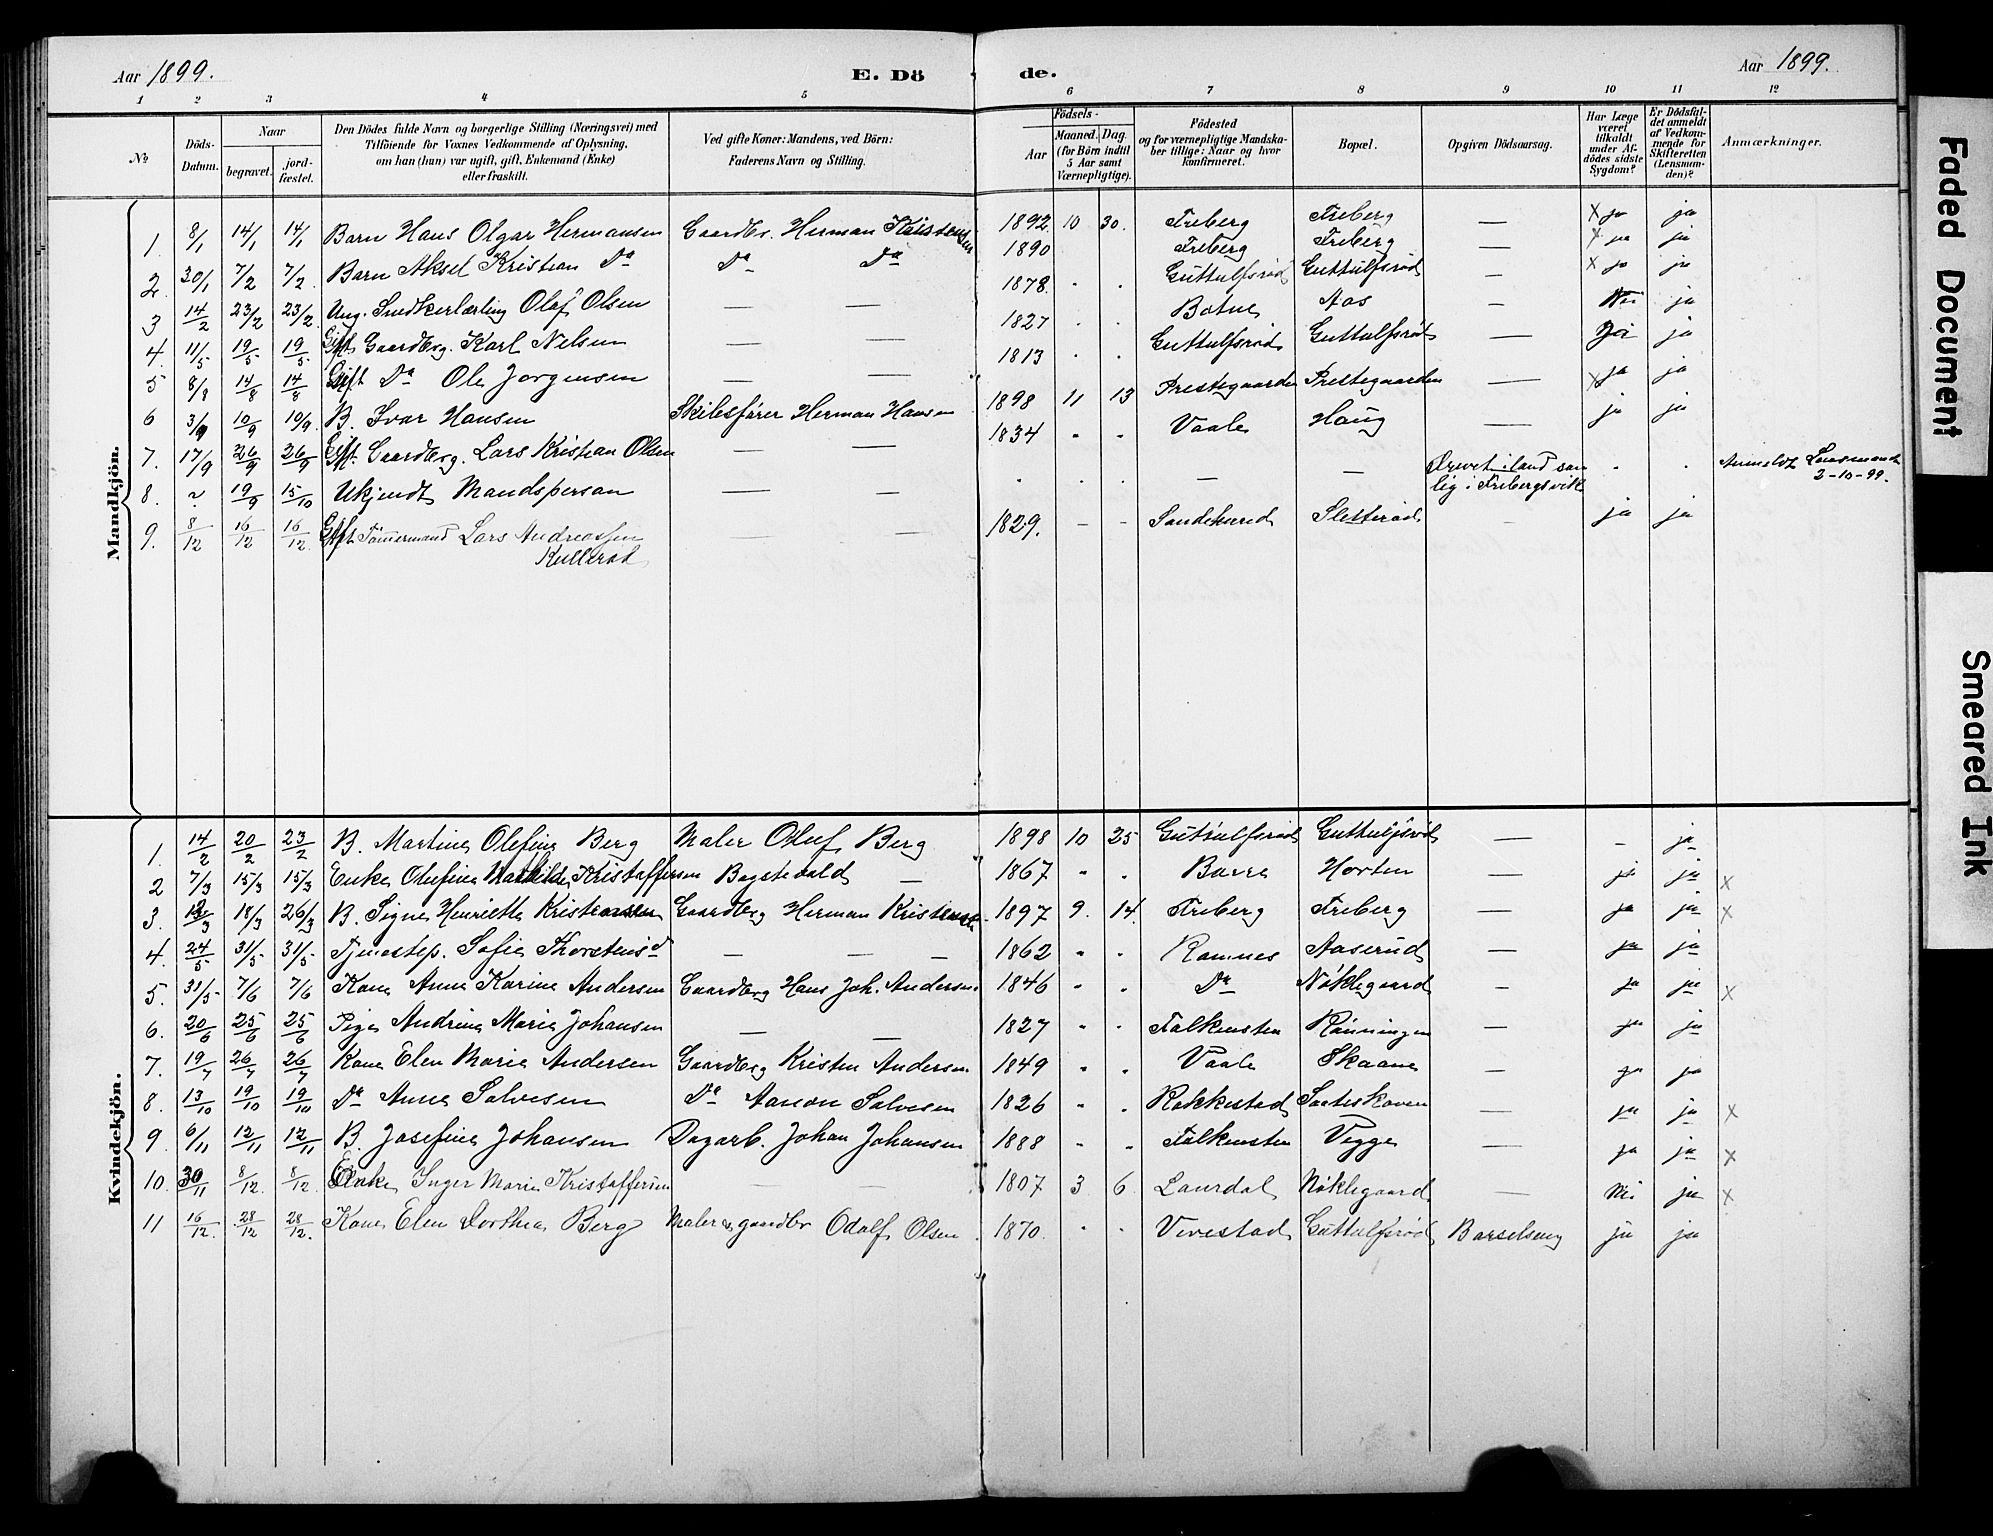 Aar 1899.
E. Dö de.
Aar 1899.
1 2 3 4 5 6 7 8 9 10 11 12
No
Döds-Datum.
Naar
begravet.
jord-fæstet.
Den Dödes fulde Navn og borgerlige Stilling (Næringsvei) med
Tilföiende for Voxnes Vedkommende af Oplysning,
om han (hun) var ugift, gift, Enkemand (Enke)
eller fraskilt.
Ved gifte Koner: Mandens, ved Börn:
Faderens Navn og Stilling.
Födsels-
Aar
Maaned. Dag.
(for Börn indtil
5 Aar samt
Værnepligtige).
Födested
og for værnepligtige Mandska-
ber tillige: Naar og hvor
konfirmeret.
Bopæl.
Opgiven Dödsaarsag.
Har Læge
været
tilkaldt
under Af-
dödes sidste
Sygdom?
Er Dödsfal-
det anmeldt
af Vedkom-
mende for
Skifteretten
(Lensman-
den)?
Anmærkninger.
Mandkjön.
1. 8/1 14/1 14/1 Barn Hans Olgar Hermansen Gaardbr. Herman Kristensen 1892 10 30. Freberg Freberg — x ja ja
2. 30/1 7/2 7/2 Barn Aksel Kristian Do Do Do 1890 Freberg Freberg — x ja ja
3 14/2 23/2 23/2 Ung. Snedkerlærling Olaf Olsen — — 1878 . . Guttulfsrød Guttulfsrød — x ja ja
4. 11/5 19/5 19/5 Gift Gaardbrg. Karl Nelsen — — 1827 . . Botne Aas — Nei ja
5 8/8 14/8 14/8 Gift Do Ole Jorgensen — — 1813 . . Guttulfsrød Guttulfsrød — ja
6 3/9 10/9 10/9 B. Ivar Hansen Skibsfører Herman Hansen 1898 11 13 Prestegaarden Prestegaarden — x ja ja
7. 17/9 26/9 26/9 Gift. Gaardbrg. Lars Kristian Olsen — — 1834 " " Vaale Haug — ja ja
8. ~ 19/9 15/10 Ukjendt Mandsperson — — . . . — — Drevet i land som
lig i Frebergsvik . . Anmeldt Lensmand
2-10-99.
9. 8/12 16/12 16/12 Gift Tömmermand Lars Andreassen
Kullerød — — 1829. — — Sandeherred Sletterød ja ja
Kvindekjön.
1. 14/2 20/2 23/2 B. Martine Olefine Berg Maler Oluf Berg 1898 10 25 Guttulfsrød Guttulfsrød — — ja
2 7/3 15/3 15/3 Enke Olufine Mathilde Kristoffersen — 1867 " " Borre Horten ja ja x
3. 13/3 18/3 26/3 B. Signe Henriette Kristensen Gaardbrg Herman Kristensen 1897 9. 14. Freberg Freberg — ja ja x
4. 24/5 31/5 31/5 Tjenestep. Sofie Thorstensd — — — 1862 " . Ramnes Aaserud — ja ja
5. 31/5 7/6 7/6 Kone Anne Karine Andersen Gaardbrg Hans Joh. Andersen 1846 " " Do Nøklegaard — ja ja x
6. 20/6 25/6 25/6 Pige Andrine Marie Johansen — — 1827 " . Falkensten Rønningen — ja ja
7. 19/7 26/7 26/7 Kone Elen Marie Andersen Gaardbrg Kristen Andersen 1849 " . Vaale Skaane — ja ja
8. 13/10 19/10 19/10 Do Anne Salvesen Do Aanon Salvesen 1826 " . Rakkestad — ja ja x
9 6/11 12/11 12/11 B. Josefine Johansen Dagarb. Johan Johansen 1888 " . Falkensten Vegge — ja ja x
10. 30/11 8/12. 8/12 Enke Inger Marie Kristoffersen — — 1807 3 6 Laurdal Nøklegaard — Nei ja x
11 16/12. 28/12 28/12. Kone Elen Dorthea Berg Maler og gaardbr Odolf Olsen 1870. . . Vivestad Guttulfsrød Barselseng ja ja
Faded Document
Smeared Ink